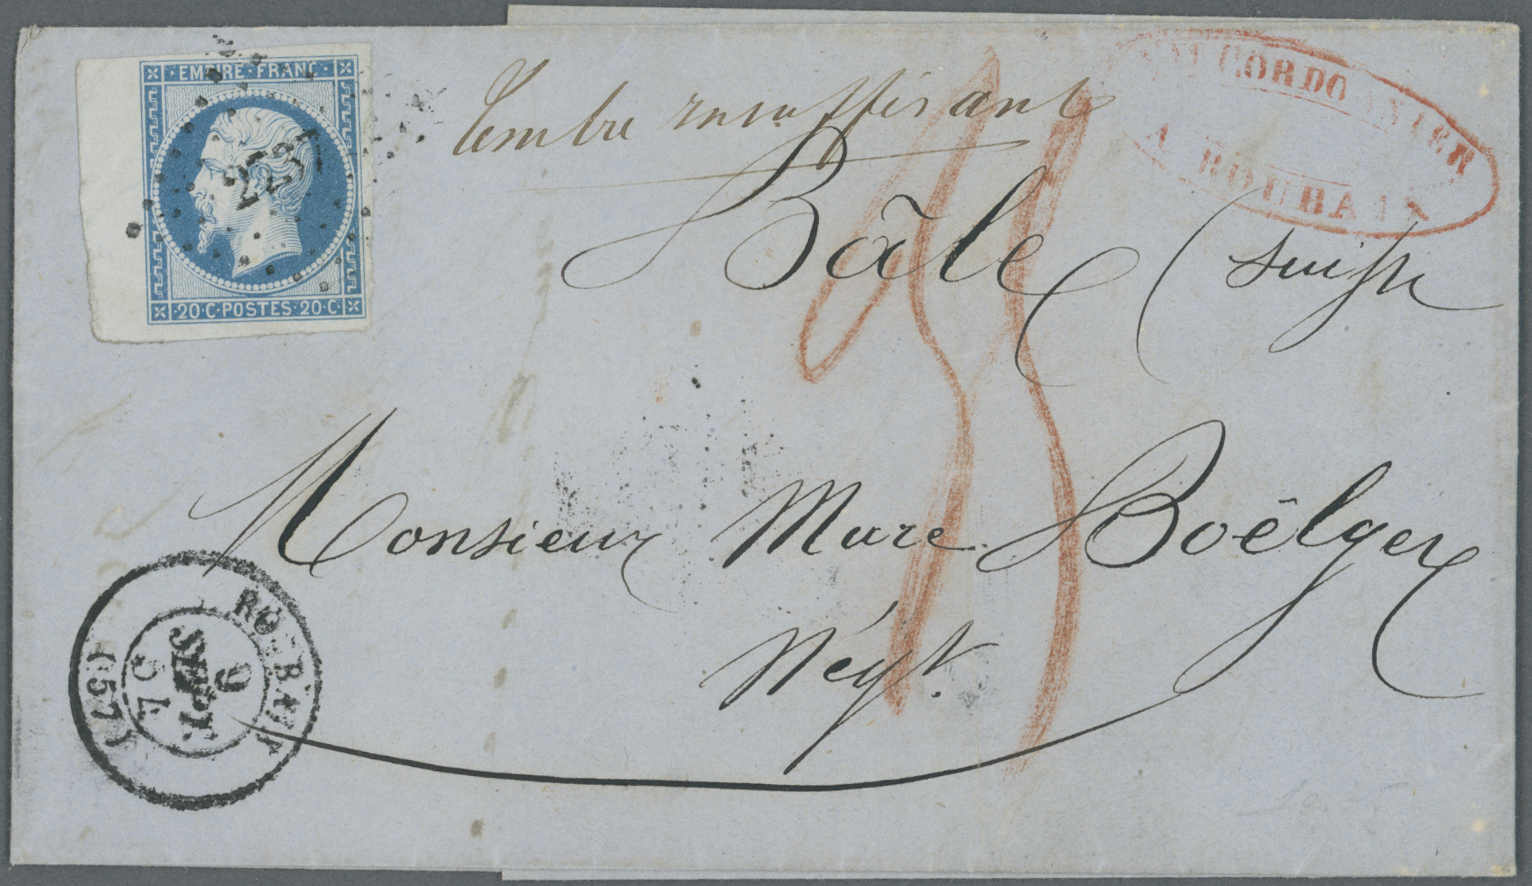 EMPIRE FRANC
2737
20·C·POSTES·20·C·
Tembre insuffisant
CORDONNIER
A ROUBAIX
Bâle (Suisse
Monsieur Marc Boëlger
Négt.
ROUBAIX
9
SEPT.
57
(57)